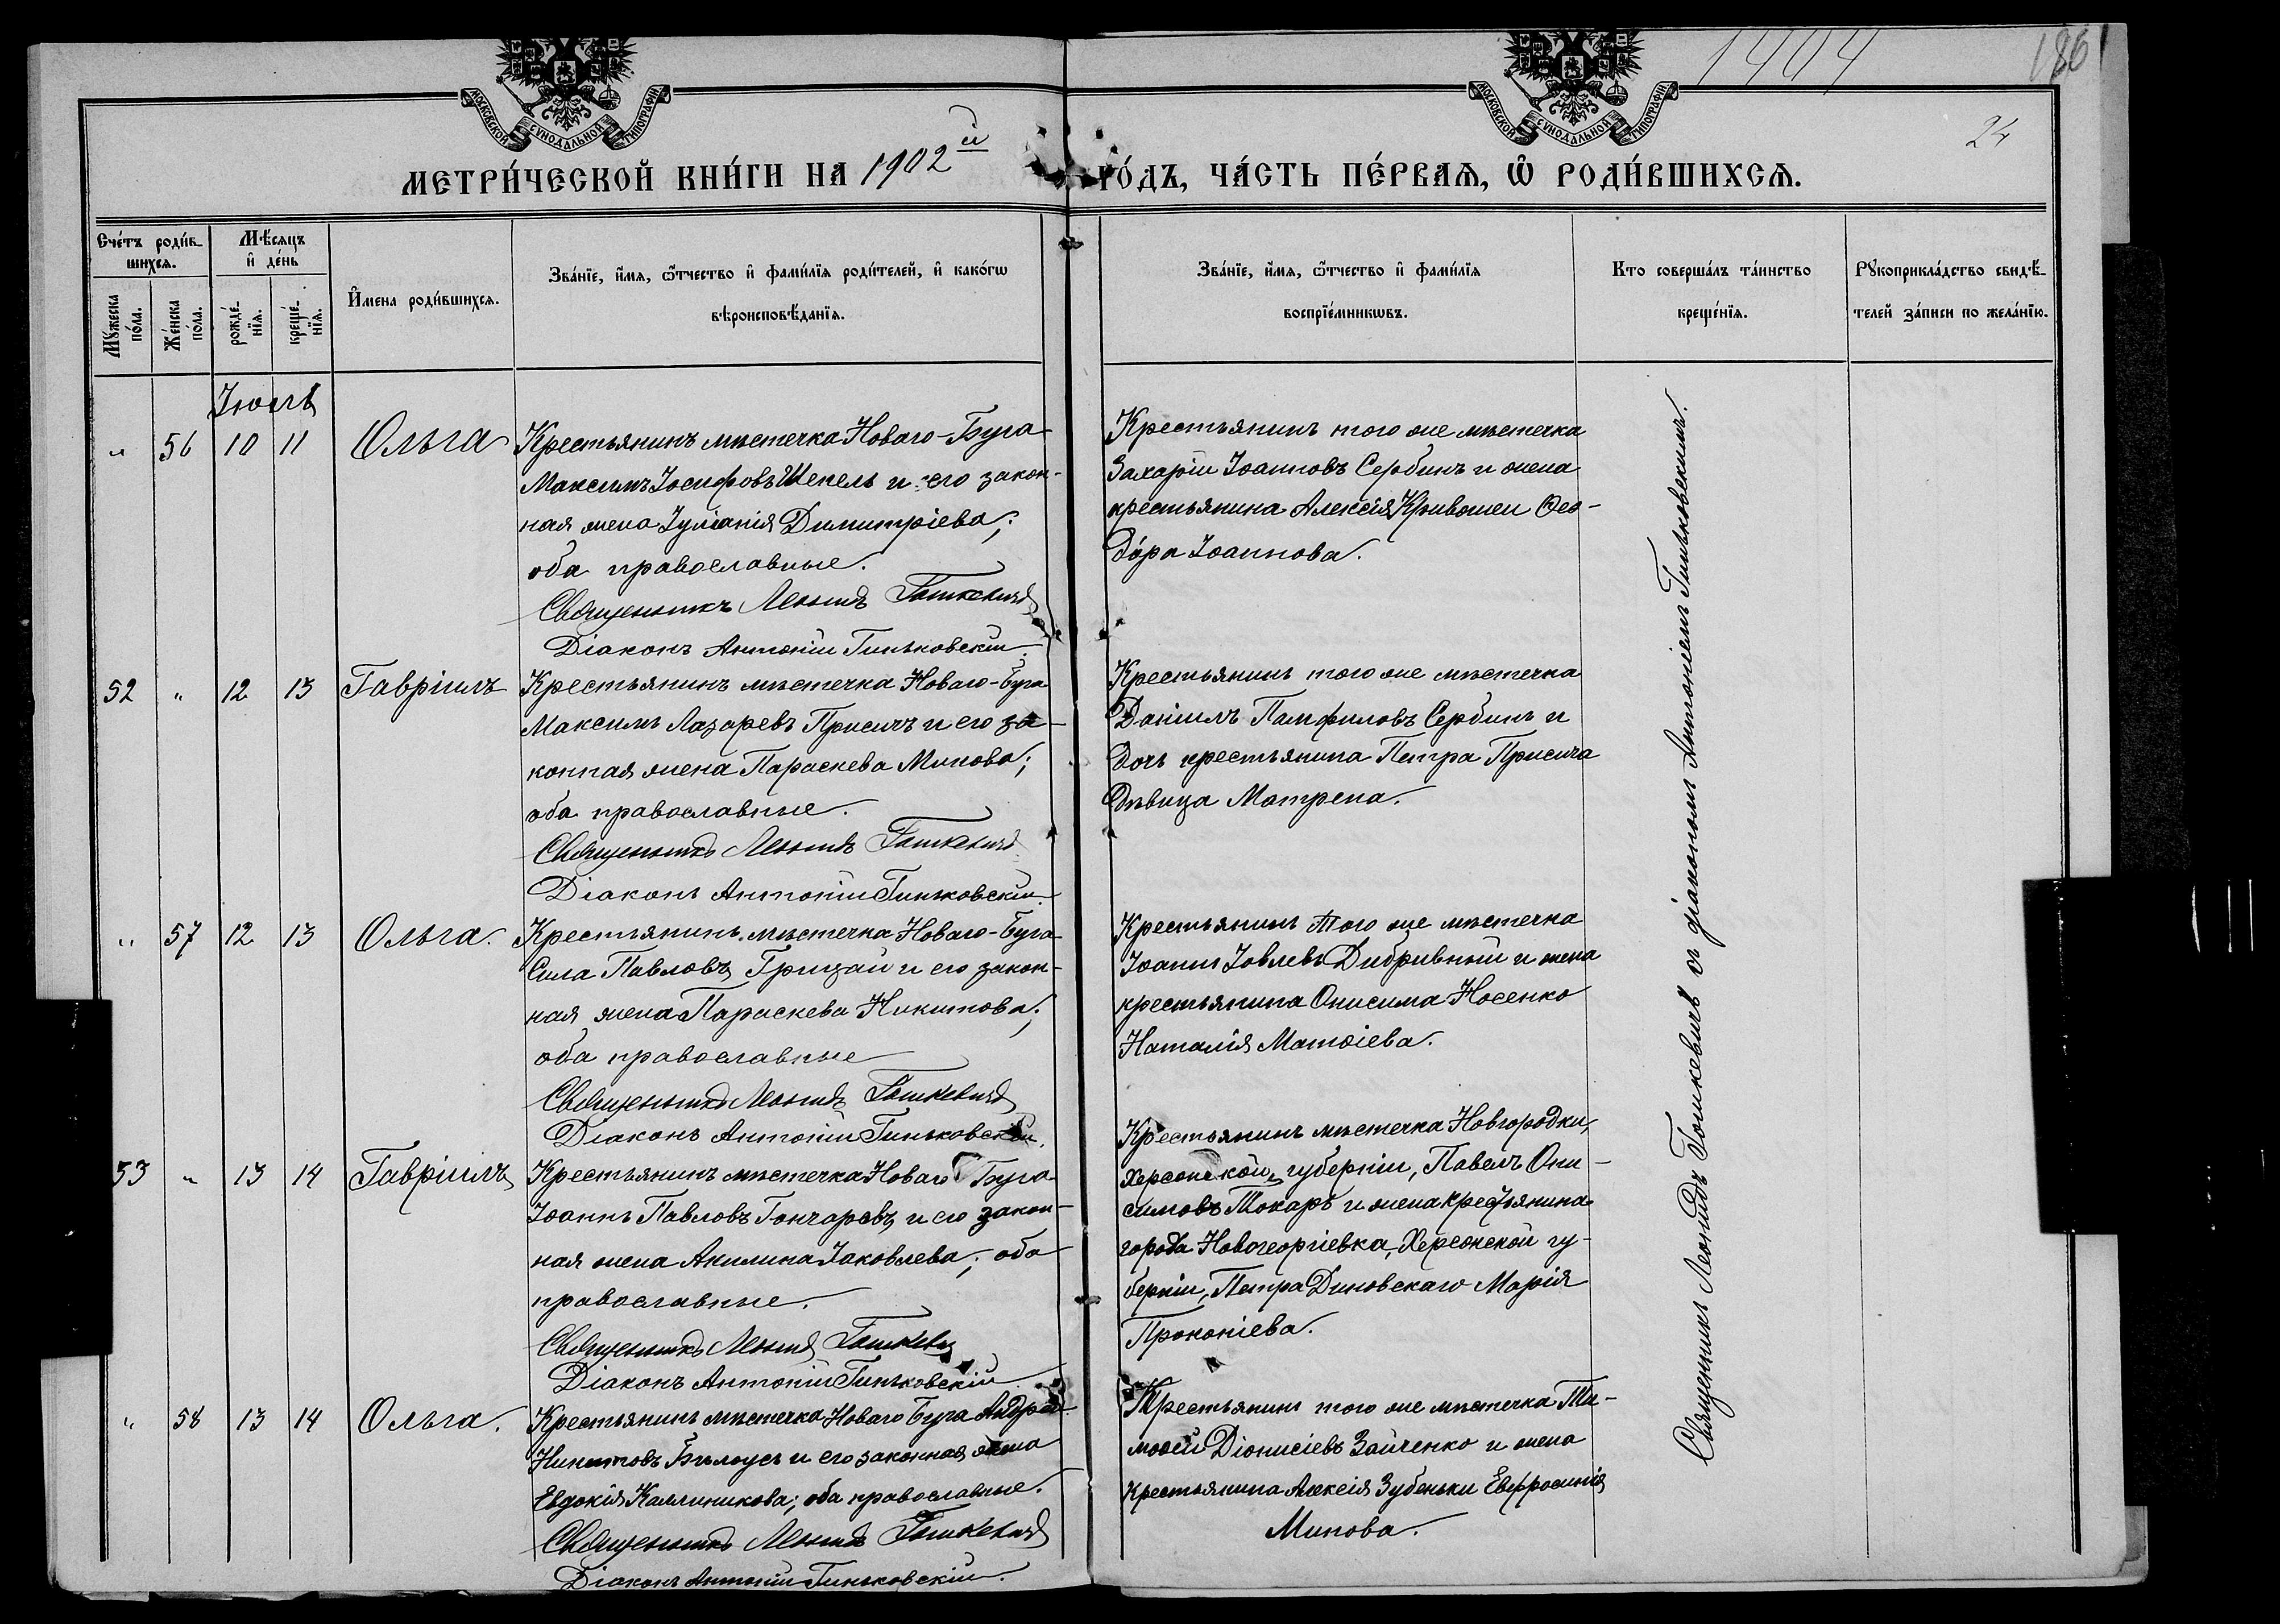 1904
186
24
МОСКОВСКОЙ СѴНОДАЛЬНОЙ ТИПОГРАФІИ
МОСКОВСКОЙ СѴНОДАЛЬНОЙ ТИПОГРАФІИ
МЕТРИ́ЧЕСКОЙ КНИ́ГИ НА 1902й
ГО́ДЪ, ЧА́СТЬ ПЕ́РВАѦ, Ѡ҆ РОДИ́ВШИХСѦ.
Счéтъ роди́в-
шихсѧ.
Мꙋ́жеска по́ла.
Же́нска по́ла.
Мѣ́сѧцъ
и҆ де́нь
рожде́-
нїѧ.
креще́-
нїѧ.
И҆мена роди́вшихсѧ.
Зва́нїе, и҆́мѧ, ѻ҆́тчество и҆ фами́лїѧ роди́телей, и҆ како́гѡ
вѣроисповѣ́данїѧ.
Зва́нїе, и҆́мѧ, ѻ҆́тчество и҆ фами́лїѧ
воспрїе́мникѡвъ.
Кто соверша́лъ та́инство
креще́нїѧ.
Рꙋкоприкла́дство свидѣ́-
телей за́писи по жела́нїю.
Іюль
" 56 10 11 Ольга
Крестьянинъ мѣстечка Новаго-Буга
Максимъ Іосифовъ Шекель и его закон-
ная жена Іуліанія Димитріева;
оба православные.
Священникъ Леонидъ Гошкевичъ
Діаконъ Антоній Гиньковскій
Крестьянинъ того же мѣстечка
Захарій Іоанновъ Сербинъ и жена
крестьянина Алексія Кривошеи Ѳео-
дора Іоаннова.
52 " 12 13 Гавріилъ
Крестьянинъ мѣстечка Новаго-Буга
Максимъ Лазаревъ Присичъ и его за-
конная жена Параскева Минова;
оба православные.
Священникъ Леонидъ Гошкевичъ
Діаконъ Антоній Гиньковскій
Крестьянинъ того же мѣстечка
Даніилъ Памфиловъ Сербинъ и
дочь крестьянина Петра Присича
дѣвица Матрена.
" 57 12 13 Ольга.
Крестьянинъ мѣстечка Новаго-Буга
Сила Павловъ Грицай и его закон-
ная жена Параскева Никитова;
оба православные
Священникъ Леонидъ Гошкевичъ
Діаконъ Антоній Гиньковскій.
Крестьянинъ того же мѣстечка
Іоаннъ Іовлевъ Дибривный и жена
крестьянина Онисима Носенко
Наталія Матѳіева.
53 " 13 14 Гавріилъ
Крестьянинъ мѣстечка Новаго Буга
Іоаннъ Павловъ Гончаровъ и его закон-
ная жена Акилина Іаковлева; оба
православные.
Священникъ Леонидъ Гошкевичъ
Діаконъ Антоній Гиньковскій
Крестьянинъ мѣстечка Новгородки,
Херсонской губерніи, Павелъ Они-
симовъ Токарь и жена крестьянина
города Новогеоргіевка, Херсонской гу-
берніи, Петра Диковскаго Марія
Прокопіева.
" 58 13 14 Ольга.
Крестьянинъ мѣстечка Новаго Буга Андрей
Никитовъ Билоусъ и его законная жена
Евдокія Каллиникова; оба православные.
Священникъ Леонидъ Гошкевичъ
Діаконъ Антоній Гиньковскій.
Крестьянинъ того же мѣстечка Ти-
моѳей Діонисіевъ Зайченко и жена
крестьянина Алексія Зубеньки Евфросинія
Минова.
Священникъ Леонидъ Гошкевичъ съ діакономъ Антоніемъ Гиньковскимъ.